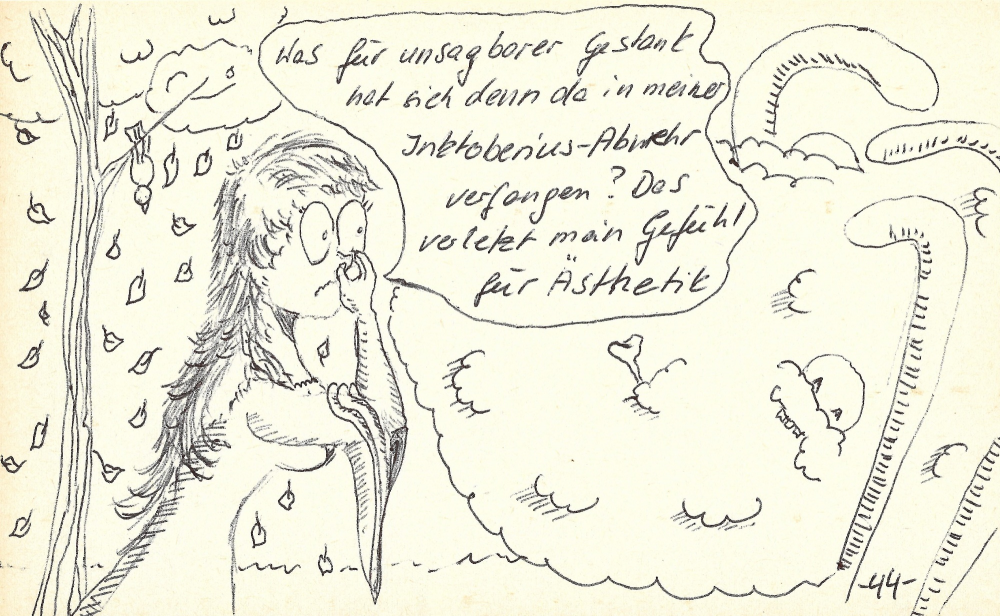 Was für unsagbarer Gestank
hat sich denn da in meiner
Inktoberius-Abwehr
verfangen? Das
verletzt mein Gefühl
für Ästhetik
-44-